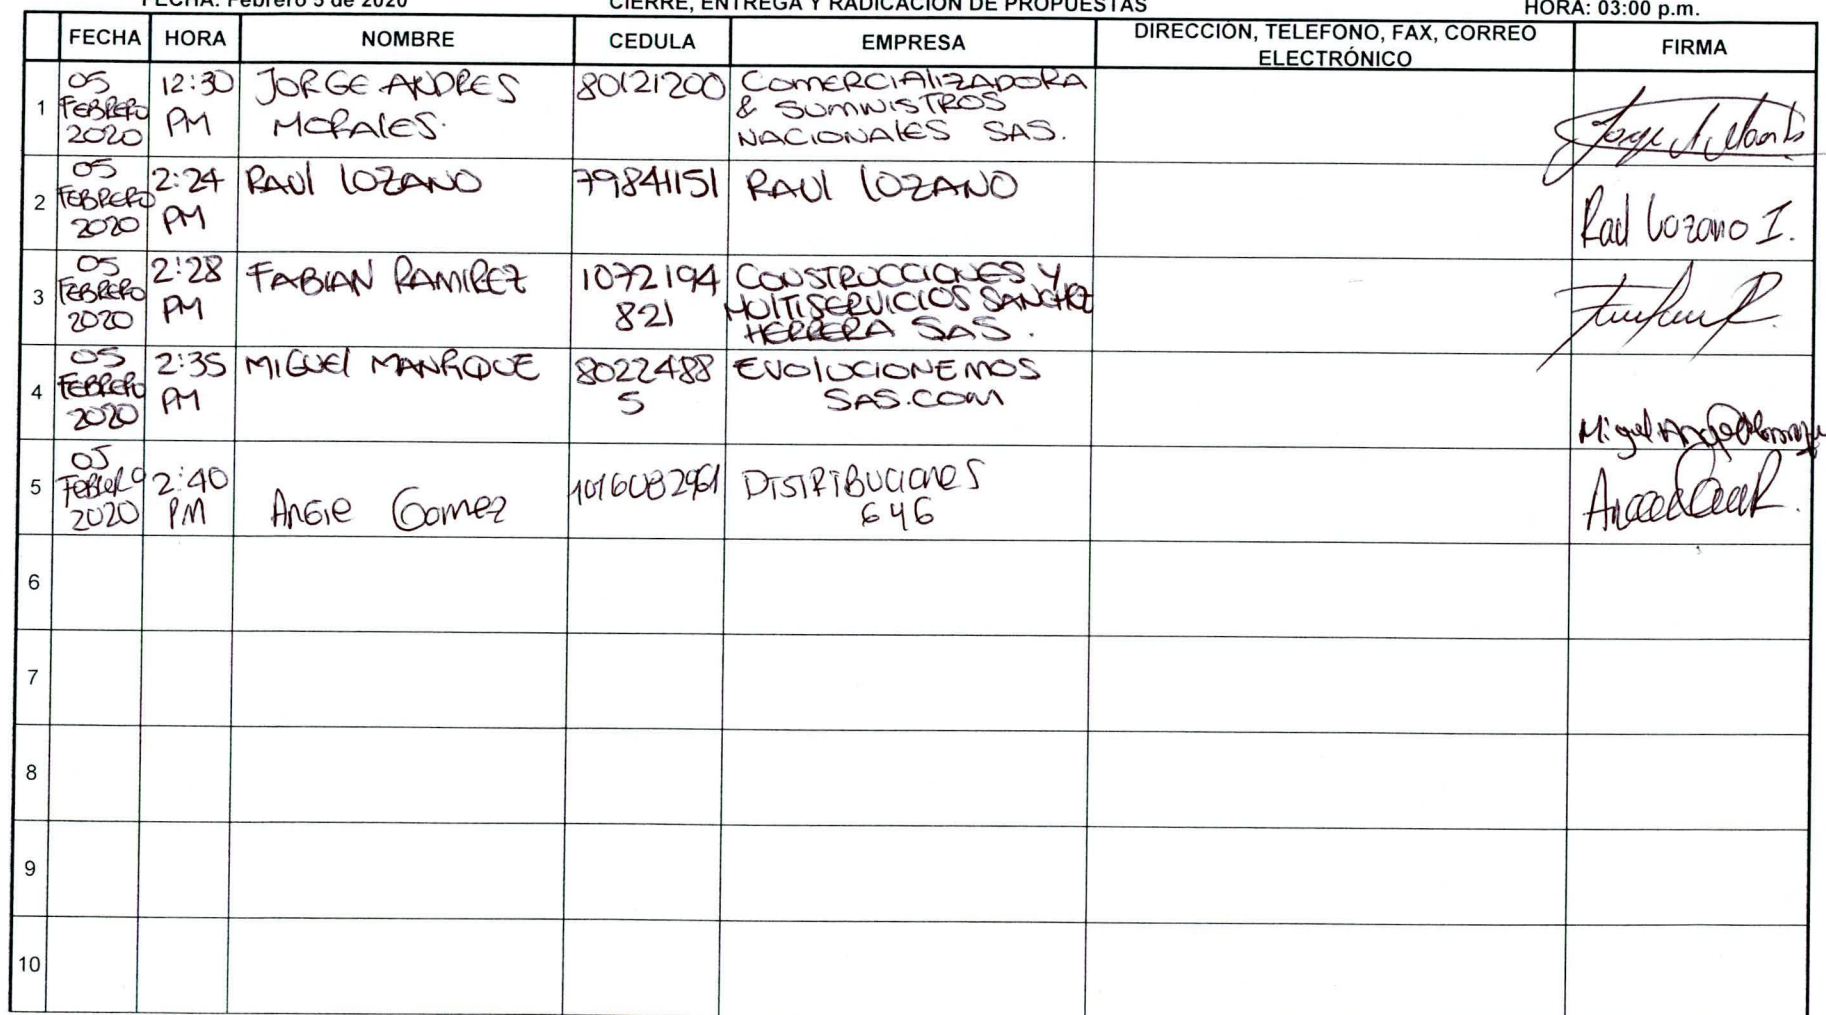 FECHA: Febrero 5 de 2020 CIERRE, ENTREGA Y RADICACION DE PROPUESTAS HORA: 03:00 p.m.
FECHA HORA NOMBRE CEDULA EMPRESA DIRECCIÓN, TELEFONO, FAX, CORREO ELECTRÓNICO FIRMA
1 05 FEBRERO 2020 12:30 PM JORGE ANDRES MORALES. 80121200 COMERCIALIZADORA & SUMINISTROS NACIONALES SAS.
2 05 FEBRERO 2020 2:24 PM RAUL LOZANO 79841151 RAUL LOZANO Raul Lozano I.
3 05 FEBRERO 2020 2:28 PM FABIAN RAMIREZ 1072194821 CONSTRUCCIONES Y MULTISERVICIOS SANCHEZ HERRERA SAS.
4 05 FEBRERO 2020 2:35 PM MIGUEL MANRIQUE 80224885 EVOLUCIONEMOS SAS.COM
5 05 Febrero 2020 2:40 PM Angie Gomez 1016082961 DISTRIBUCIONES 646
6
7
8
9
10